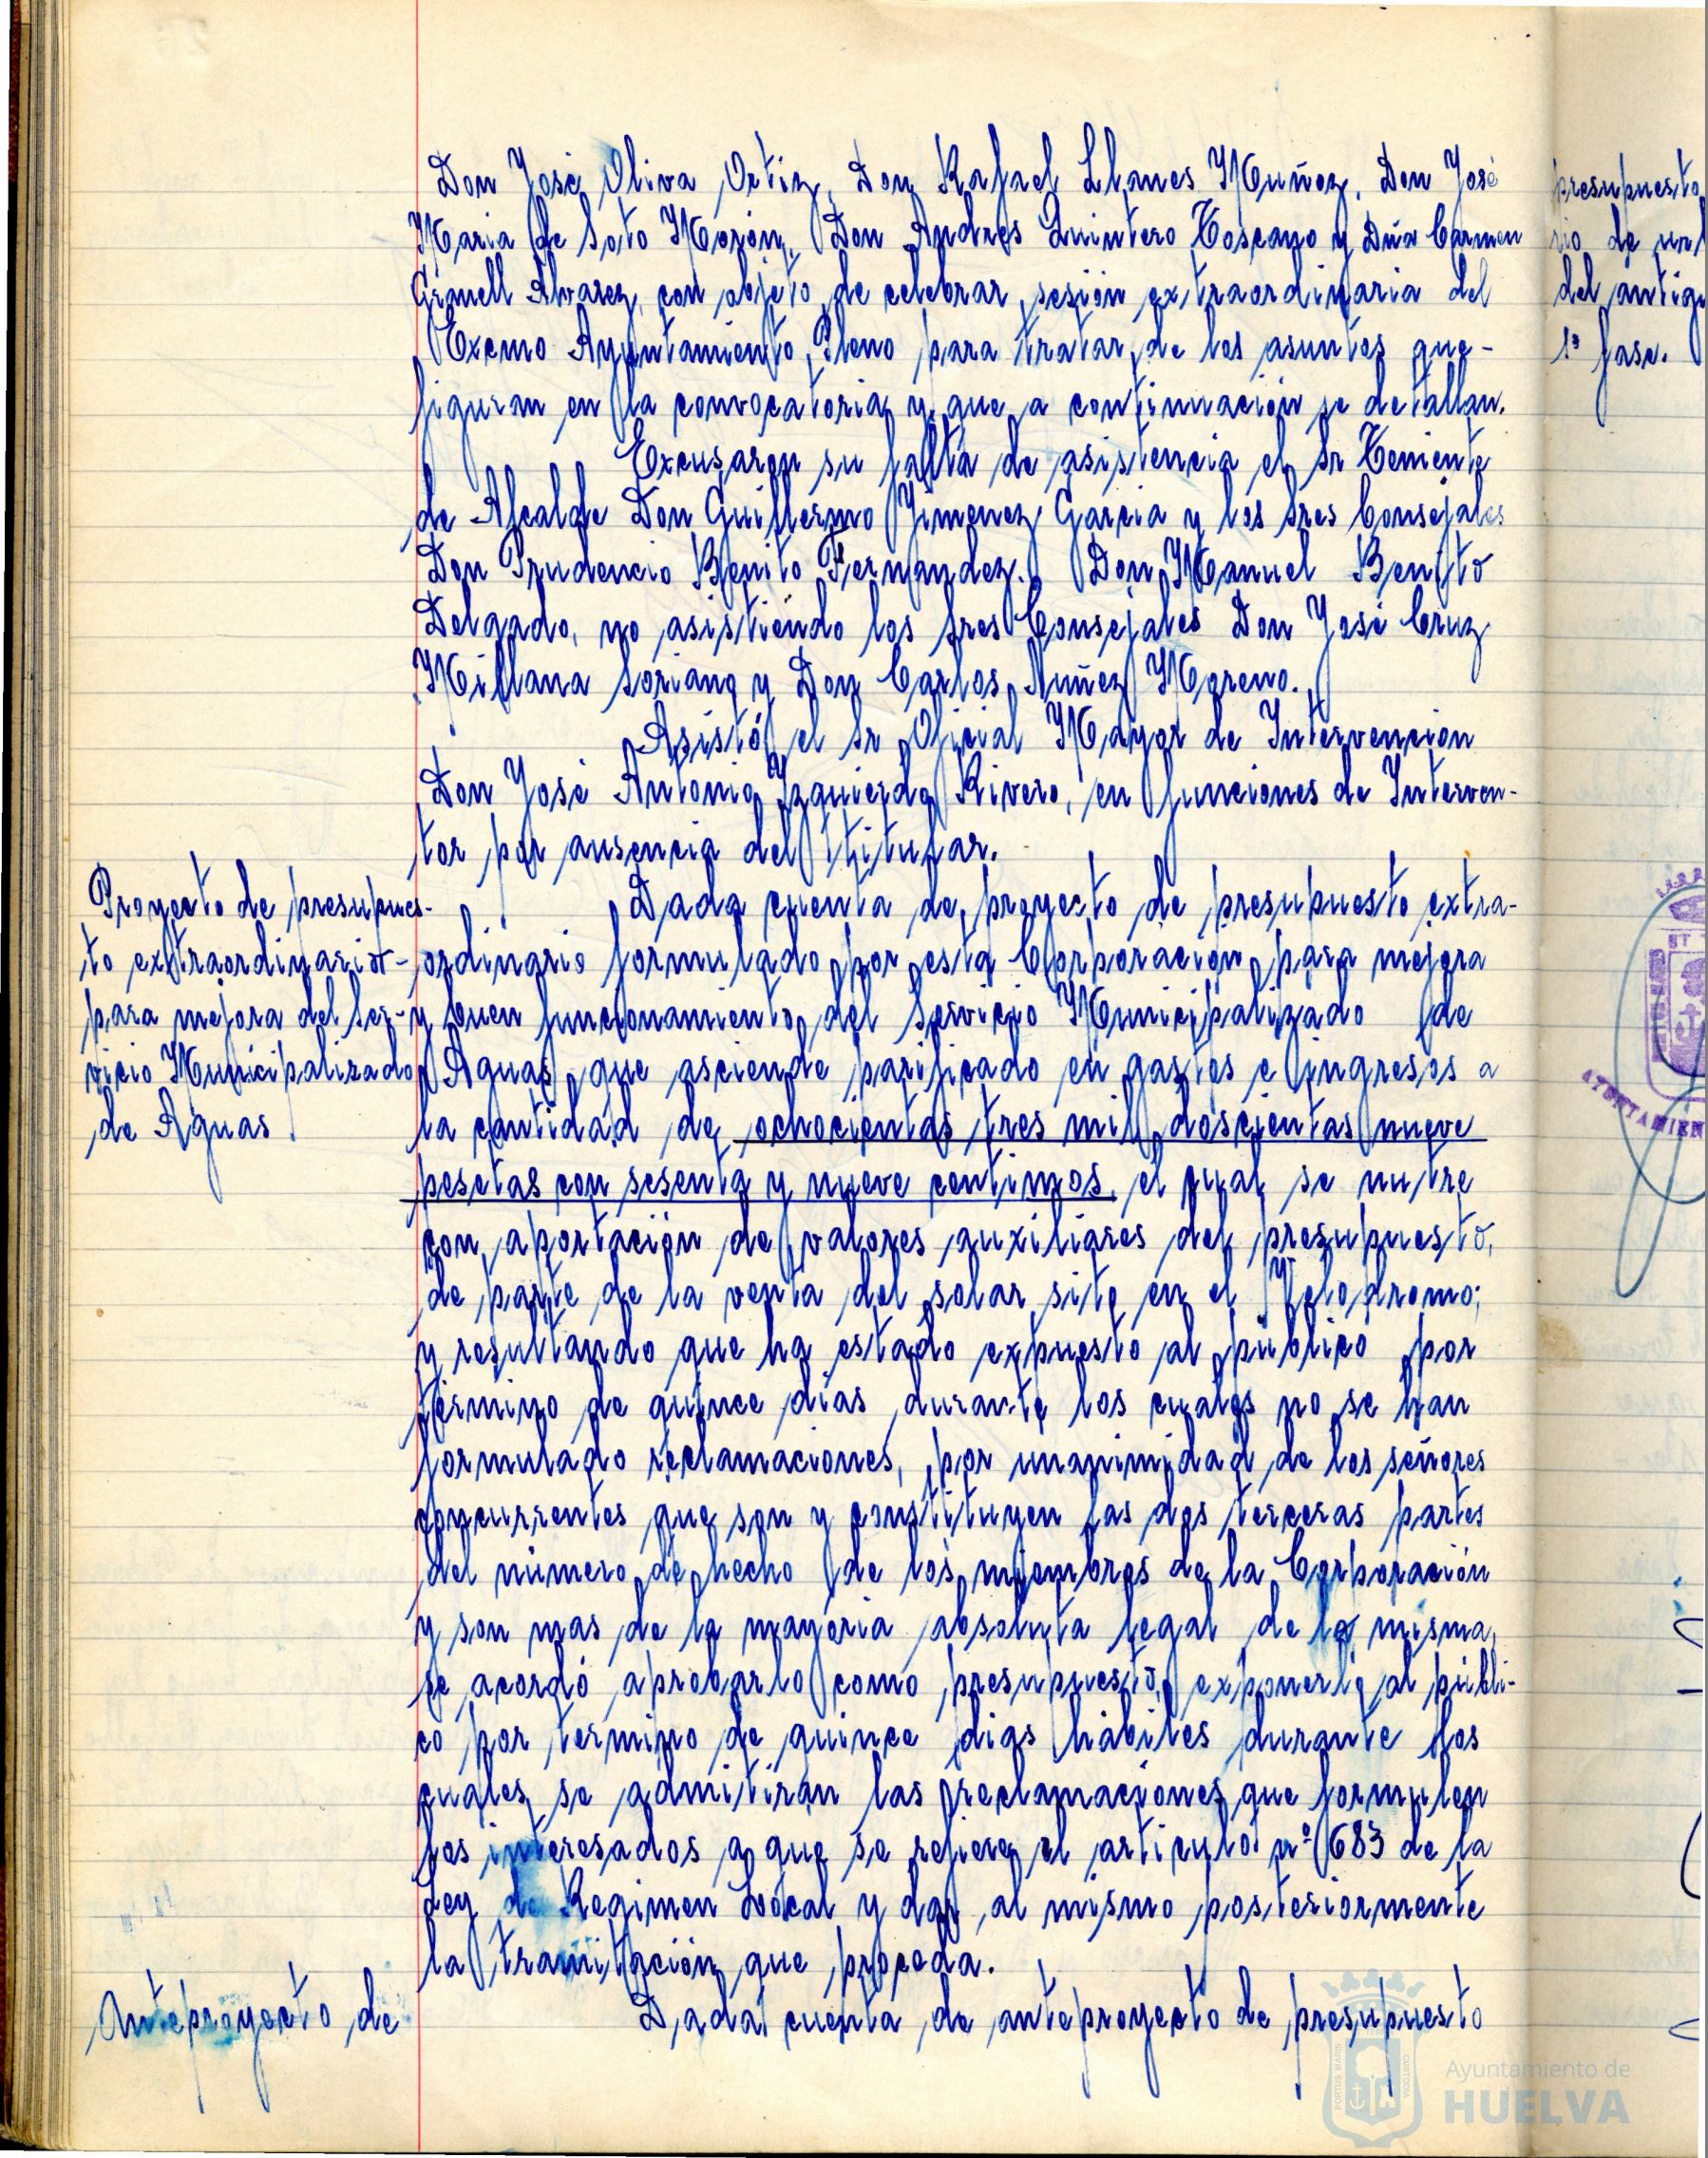 Don José Oliva Ortiz, Don Rafael Llanes Muñoz, Don José
Maria de Soto Morón, Don Andres Quintero Toscano y Dña Carmen
Granell Alvarez, con objeto de celebrar sesión extraordinaria del
Excmo Ayuntamiento Pleno para tratar de los asuntos que-
figuran en la convocatoria y que a continuación se detallan.
Excusaron su falta de asistencia el Sr Teniente
de Alcalde Don Guillermo Jimenez Garcia y los Sres Consejales
Don Prudencio Benito Fernandez. Don Manuel Benito
Delgado, no asistiendo los Sres Consejales Don José Cruz
Millana Soriano y Don Carlos Nuñez Moreno.
Asistó el Sr Oficial Mayor de Intervención
Don José Antonio Izquierdo Rivero, en funciones de Interven-
tor por ausencia del titular.
Proyecto de presupues-
to extraordinario-
para mejora del Ser-
vicio Municipalizado
de Aguas
Dada cuenta de proyecto de presupuesto extra-
ordinario formulado por esta Corporación para mejora
y buen funcionamiento del Servicio Municipalizado de
Aguas que asciende parificado en gastos e ingresos a
la cantidad de ochocientas tres mil doscientas nueve
pesetas con sesenta y nueve centimos, el cual se nutre
con aportación de valores auxiliares del presupuesto,
de parte de la venta del solar sito en el Velodromo;
y resultando que ha estado expuesto al público por
termino de quince dias durante los cuales no se han
formulado reclamaciones, por unanimidad de los señores
concurrentes que son y constituyen las dos terceras partes
del número de hecho de los miembros de la Corporación
y son mas de la mayoria absoluta legal de la misma,
se acordó aprobarlo como presupuesto, exponerlo al públi-
co por termino de quince dias hábiles durante los
cuales se admitirán las reclamaciones que formulen
los interesados a que se refiere el articulo nº 683 de la
Ley de Regimen Local y dar al mismo posteriormente
la tramitación que proceda.
Anteproyecto de
Dada cuenta de anteproyecto de presupuesto
presupuesto
rio de
del antig
1ª fase.
AYUNTAMIEN
Ayuntamiento de
HUELVA